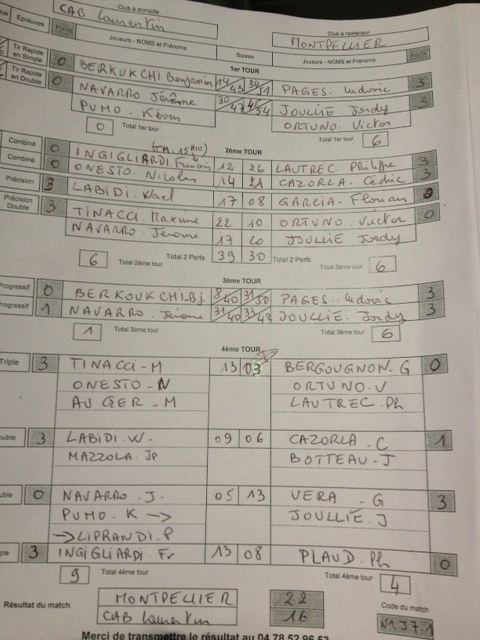 Club à domicile
Club à l'extérieur
CAB Laurentin
MONTPELLIER
Epreuves Points Joueurs - NOMS et Prénoms Scores Joueurs - NOMS et Prénoms Points
1er TOUR
Tir Rapide en Simple 0 BERKUKCHI Benjamin PAGES Ludovic 3
Tir Rapide en Double 0 NAVARRO Jérôme JOULLIE Jordy 3
PUMO Kévin ORTUNO Victor
0 Total 1er tour Total 1er tour 6
2ème TOUR
Combiné 0 INGIGLIARDI 12 26 LAUTREC Philippe 3
Combiné 0 ONESTO Nicolas 14 21 CAZORLA Cédric 3
Précision 3 LABIDI Wael 17 08 GARCIA Florian 0
Précision Double 3 TINACCI Maxime 22 10 ORTUNO Victor 0
NAVARRO Jérome 17 20 JOULLIE Jordy
6 Total 2ème tour Total 2 Perfs 39 30 Total 2 Perfs Total 2ème tour 6
3ème TOUR
Progressif 0 BERKOUKCHI.Bj 8/40 31/50 PAGES Ludovic 3
Progressif 1 NAVARRO Jérome 31/40 33/42 JOULLIE Jordy 3
1 Total 3ème tour Total 3ème tour 6
4ème TOUR
Triple 3 TINACCI - M 13 03 BERGOUGNON - G 0
ONESTO - N ORTUNO - V
AUGER - M LAUTREC. Ph
Double 3 LABIDI - W. 09 06 CAZORLA - C 1
MAZZOLA. JP BOTTEAU - J
Double 0 NAVARRO. J. 05 13 VERA - G 3
PUMO. K → JOULLIE. J
→ LIPRANDI. P
3 INGIGLIARDI. Fr 13 08 PLAUD. Ph 0
9 Total 4ème tour Total 4ème tour 4
Résultat du match MONTPELLIER 22 Code du match
CAB Laurentin 16 N1J7.1
Merci de transmettre le résultat au 04 78 52 96